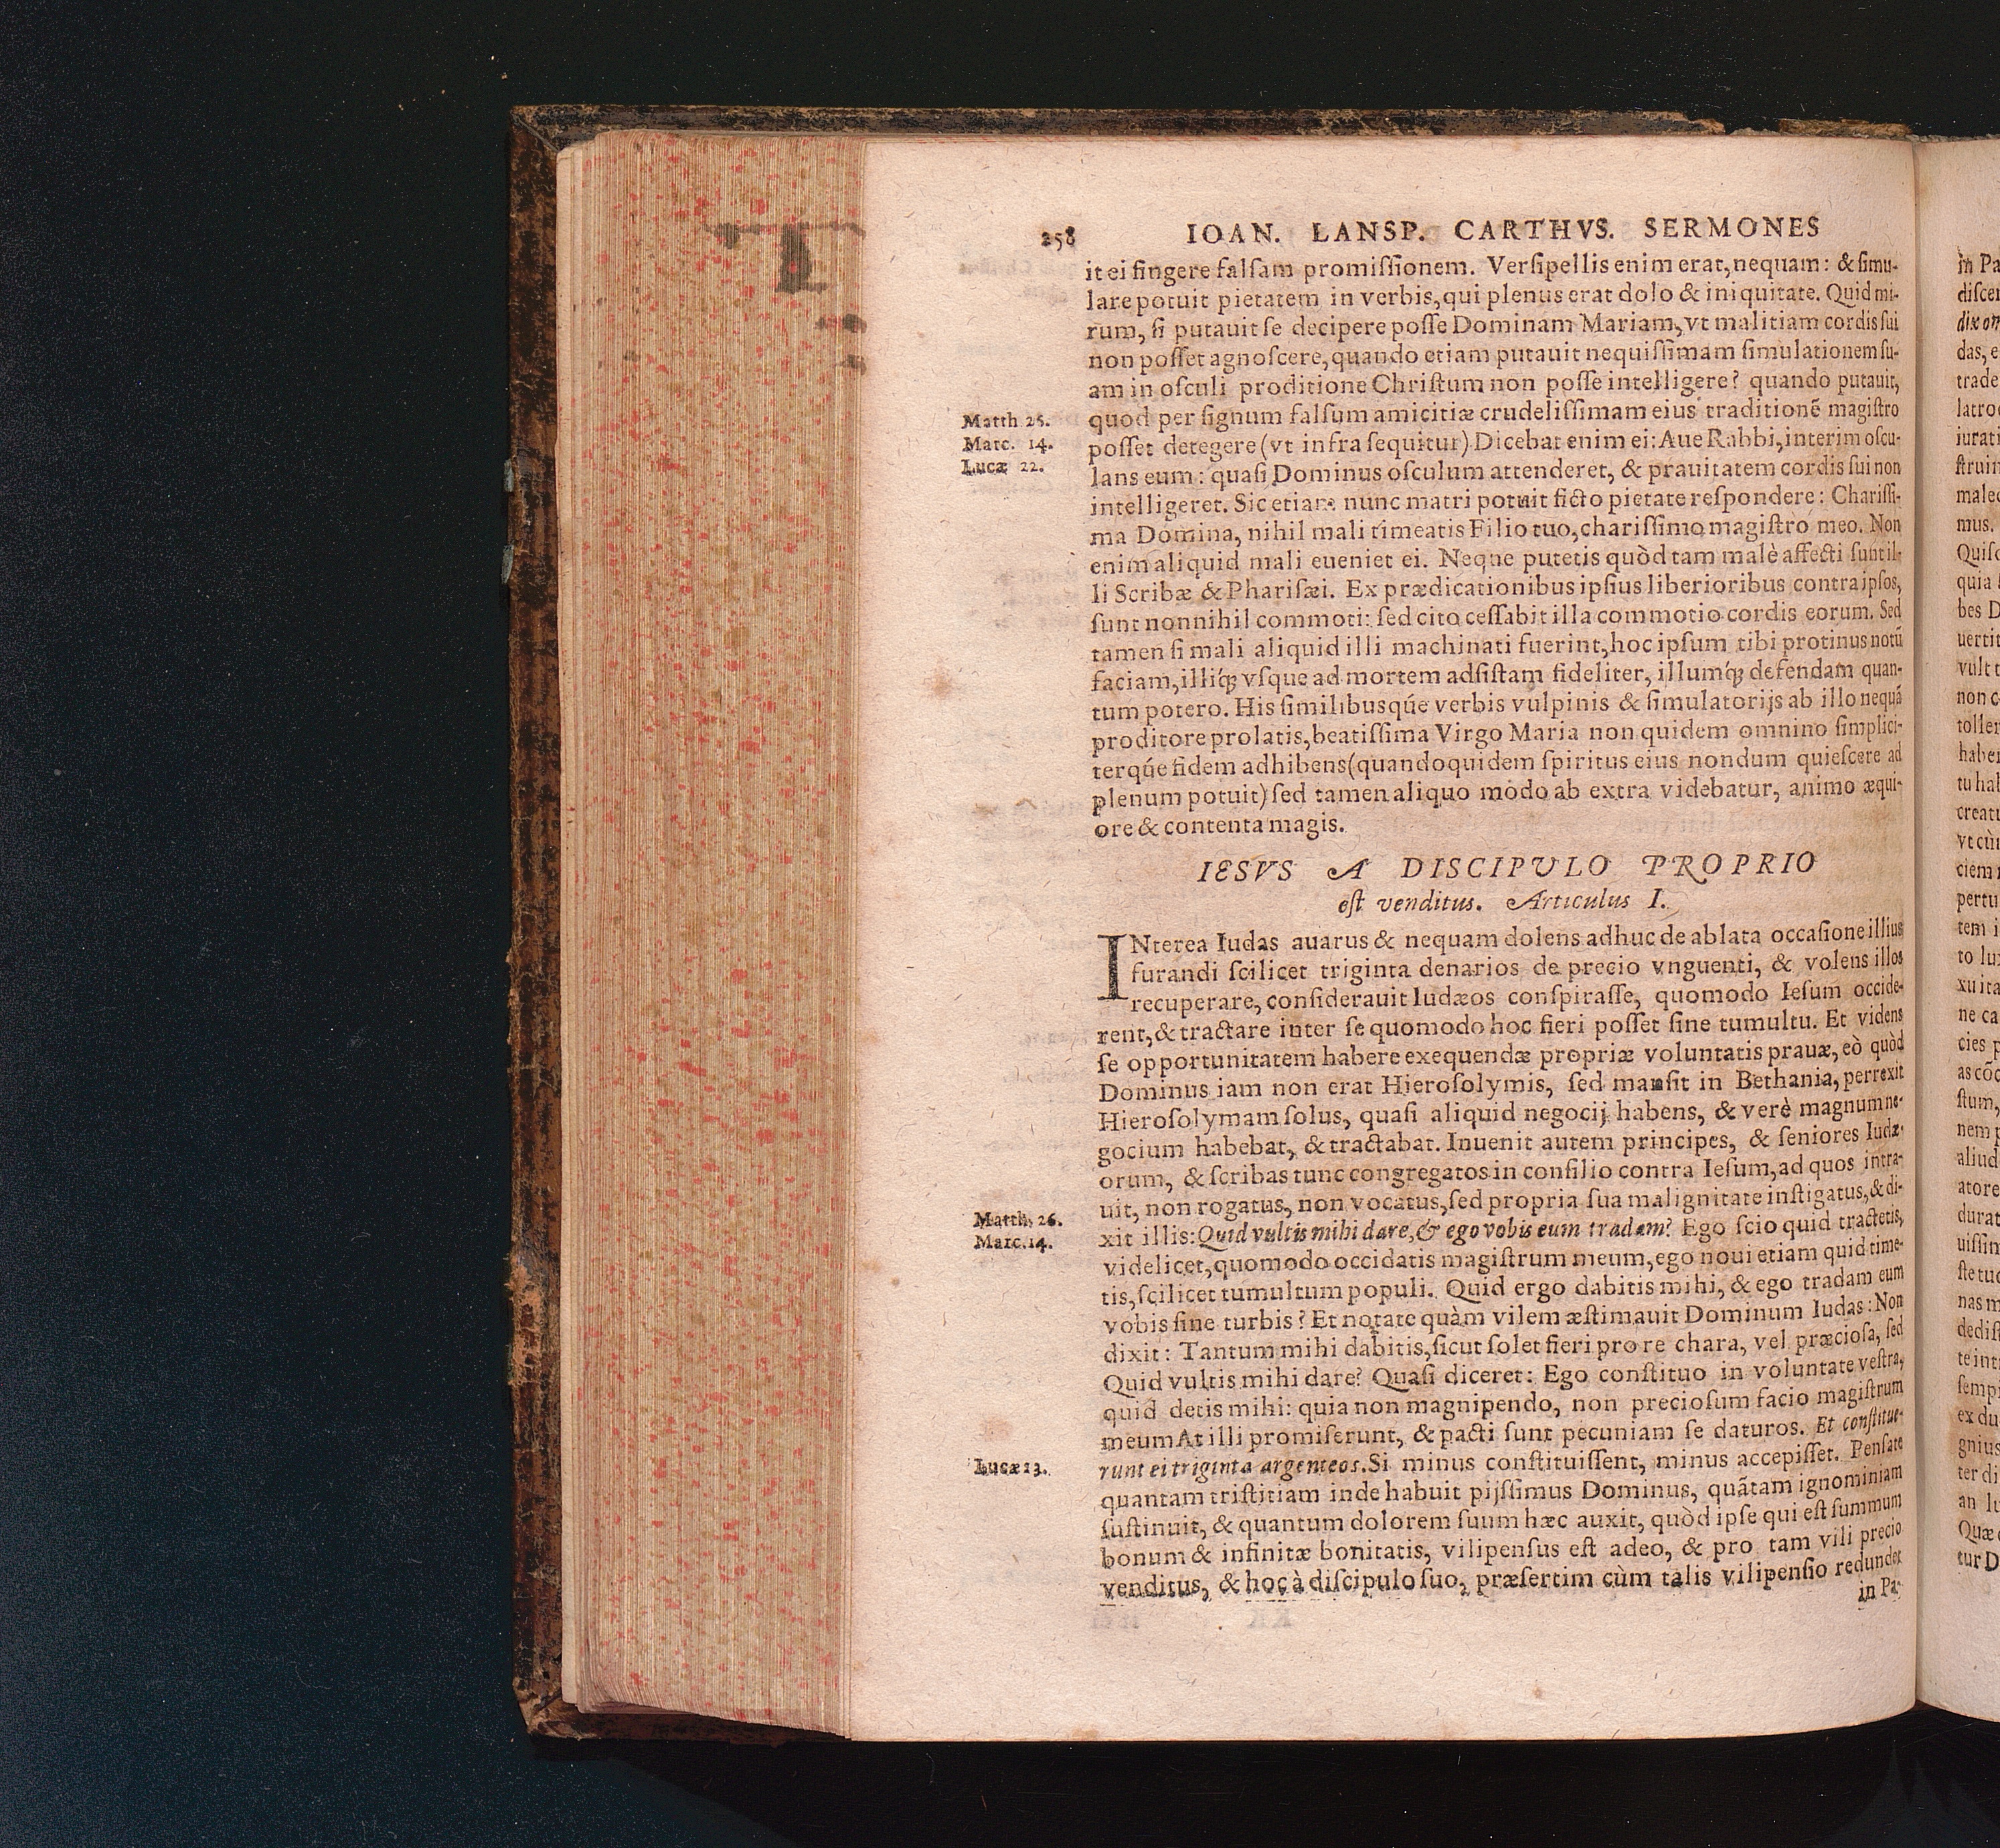 258 IOAN. LANSP. CARTHVS. SERMONES
it ei fingere falſam promiſſionem. Verſipellis enim erat, nequam: & ſimu-
lare potuit pietatem in verbis, qui plenus erat dolo & iniquitate. Quid mi-
rum, ſi putauit ſe decipere poſſe Dominam Mariam, vt malitiam cordis ſui
non poſſet agnoſcere, quando etiam putauit nequiſſimam ſimulationem ſu-
am in oſculi proditione Chriſtum non poſſe intelligere? quando putauit,
Matth 26.
quod per ſignum falſum amicitiæ crudeliſſimam eius traditionē magiſtro
Marc. 14.
poſſet detegere (vt infra ſequitur) Dicebat enim ei: Aue Rabbi, interim oſcu-
Lucæ 22.
lans eum: quaſi Dominus oſculum attenderet, & prauitatem cordis ſui non
intelligeret. Sic etiam nunc matri potuit ficto pietate reſpondere: Chariſſi-
ma Domina, nihil mali timeatis Filio tuo, chariſſimo magiſtro meo. Non
enim aliquid mali eueniet ei. Neque putetis quòd tam malè affecti ſunt il-
li Scribæ & Phariſæi. Ex prædicationibus ipſius liberioribus contra ipſos,
ſunt nonnihil commoti: ſed cito ceſſabit illa commotio cordis eorum. Sed
tamen ſi mali aliquid illi machinati fuerint, hoc ipſum tibi protinus notū
faciam, illiq́; vſque ad mortem adſiſtam fideliter, illumq́; defendam quan-
tum potero. His ſimilibusqúe verbis vulpinis & ſimulatorijs ab illo nequā
proditore prolatis, beatiſſima Virgo Maria non quidem omnino ſimplici-
terqúe fidem adhibens (quandoquidem ſpiritus eius nondum quieſcere ad
plenum potuit) ſed tamen aliquo modo ab extra videbatur, animo æqui-
ore & contenta magis.
IESVS A DISCIPVLO PROPRIO
eſt venditus. Articulus I.
INterea Iudas auarus & nequam dolens adhuc de ablata occaſione illius
furandi ſcilicet triginta denarios de precio vnguenti, & volens illos
recuperare, conſiderauit Iudæos conſpiraſſe, quomodo Ieſum occide-
rent, & tractare inter ſe quomodo hoc fieri poſſet ſine tumultu. Et videns
ſe opportunitatem habere exequendæ propriæ voluntatis prauæ, eò quòd
Dominus iam non erat Hieroſolymis, ſed manſit in Bethania, perrexit
Hieroſolymam ſolus, quaſi aliquid negocij habens, & verè magnum ne-
gocium habebat, & tractabat. Inuenit autem principes, & ſeniores Iudæ-
orum, & ſcribas tunc congregatos in conſilio contra Ieſum, ad quos intra-
uit, non rogatus, non vocatus, ſed propria ſua malignitate inſtigatus, & di-
Matth. 26.
Marc. 14.
xit illis: Quid vultis mihi dare, & ego vobis eum tradam? Ego ſcio quid tractetis,
videlicet, quomodo occidatis magiſtrum meum, ego noui etiam quid time-
tis, ſcilicet tumultum populi. Quid ergo dabitis mihi, & ego tradam eum
vobis ſine turbis? Et notate quàm vilem æſtimauit Dominum Iudas: Non
dixit: Tantum mihi dabitis, ſicut ſolet fieri pro re chara, vel præcioſa, ſed
Quid vultis mihi dare? Quaſi diceret: Ego conſtituo in voluntate veſtra,
quid detis mihi: quia non magnipendo, non precioſum facio magiſtrum
meum At illi promiſerunt, & pacti ſunt pecuniam ſe daturos. Et conſtitue-
Lucæ 23.
runt ei triginta argenteos. Si minus conſtituiſſent, minus accepiſſet. Penſate
quantam triſtitiam inde habuit pijſſimus Dominus, quātam ignominiam
ſuſtinuit, & quantum dolorem ſuum hæc auxit, quòd ipſe qui eſt ſummum
bonum & infinitæ bonitatis, vilipenſus eſt adeo, & pro tam vili precio
venditus, & hoc à diſcipulo ſuo, præſertim cùm talis vilipenſio redundet
in Pa-